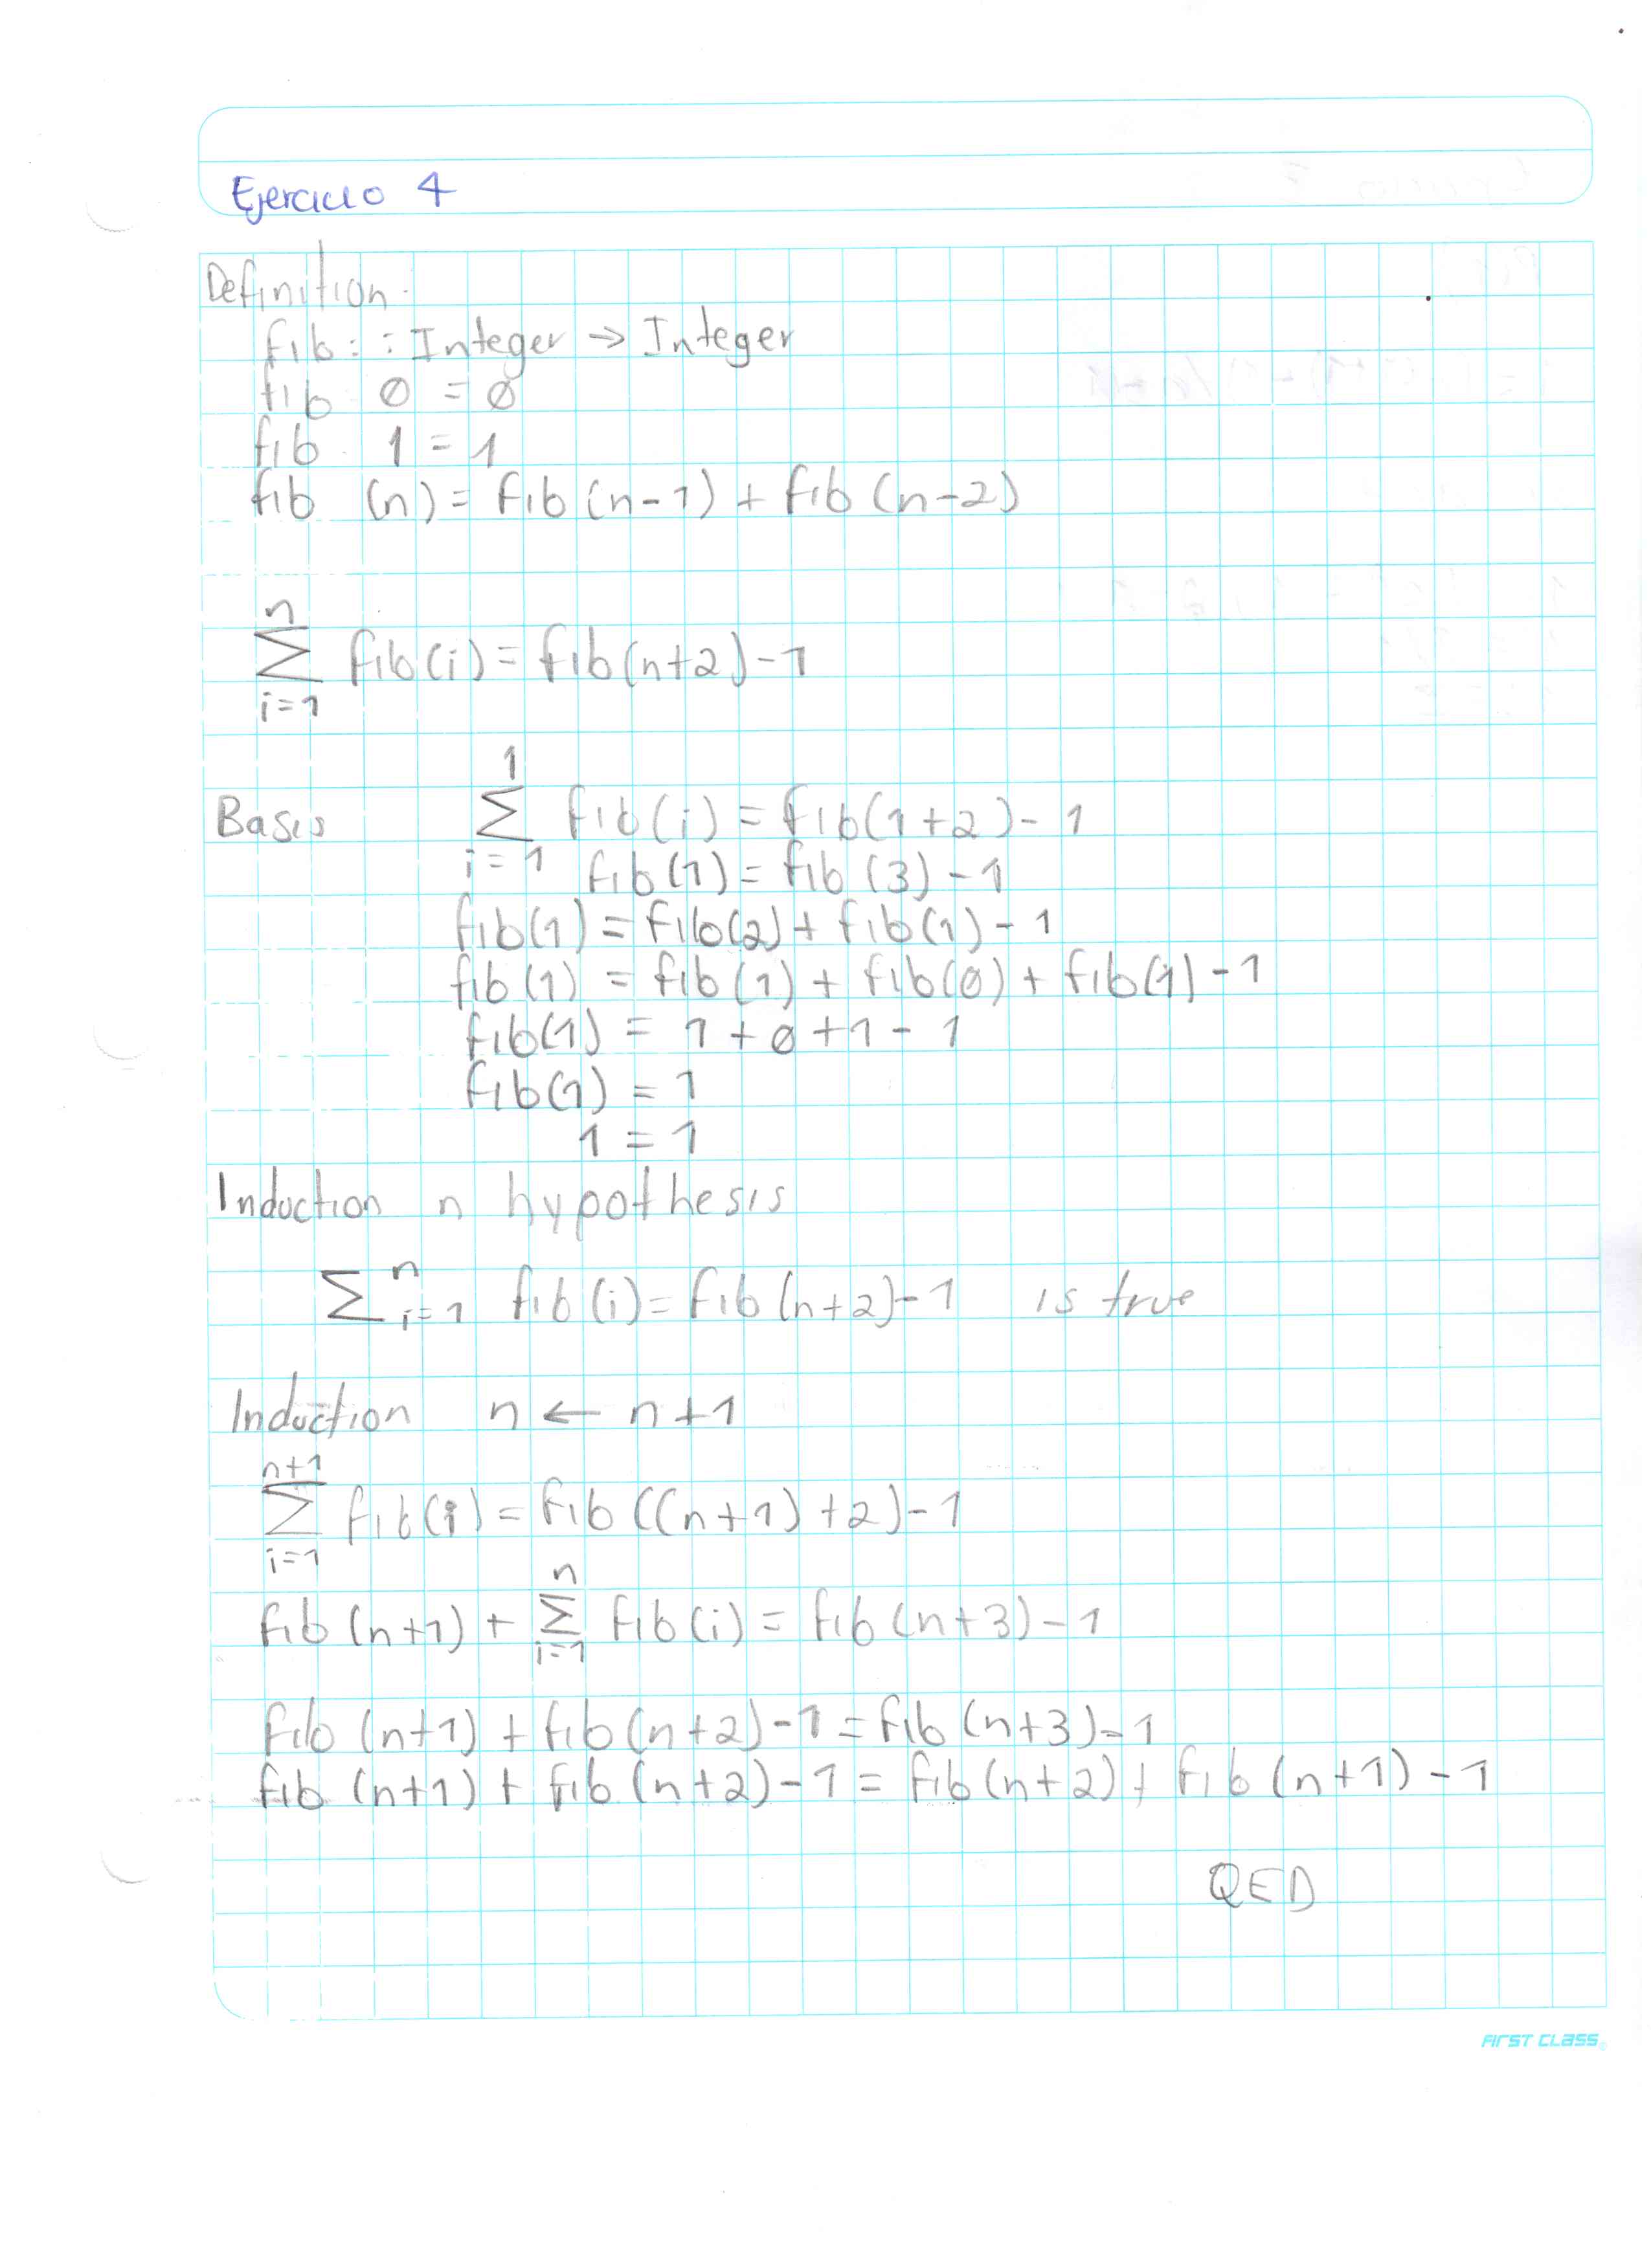 Ejercicio 4
Definition.
fib :: Integer → Integer
fib 0 = 0
fib 1 = 1
fib (n) = fib (n-1) + fib (n-2)
n
∑ fib(i) = fib(n+2)-1
i=1
1
Basis ∑ fib(i) = fib(1+2)-1
i=1 fib(1) = fib(3)-1
fib(1) = fib(2) + fib(1)-1
fib(1) = fib(1) + fib(0) + fib(1)-1
fib(1) = 1+0+1-1
fib(1) = 1
1 = 1
Induction n hypothesis
∑ⁿᵢ₌₁ fib(i) = fib(n+2)-1 is true
Induction n ← n+1
n+1
∑ fib(i) = fib((n+1)+2)-1
i=1
n
fib(n+1) + ∑ fib(i) = fib(n+3)-1
i=1
fib(n+1) + fib(n+2)-1 = fib(n+3)-1
fib(n+1) + fib(n+2)-1 = fib(n+2) + fib(n+1)-1
QED
FIRST CLASS